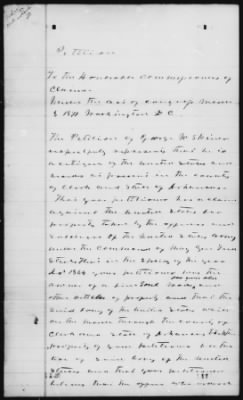 Petition
To the Honorable Commissioners of
Claims
Under the Act of Congress March
3 1871 Washington D C
The Petition of George W
respectfully represents that he is
a citizen of the United States and
resides at present in the county
of Clark and State of Arkansas
That your petitioner has a claim
against the United States for
property taken by the officers and
soldiers of the United States Army
under the Command of Maj Gen Fred
Steele in the Spring of the year
AD 1864 your petitioner was the
owner of a
other articles of property and that the
said Army of the United States while
on the march through the county of
Clark and State of Arkansas
property of your petitioner for the
use of said Army of the United
States and that your petitioner
believes that the officer who